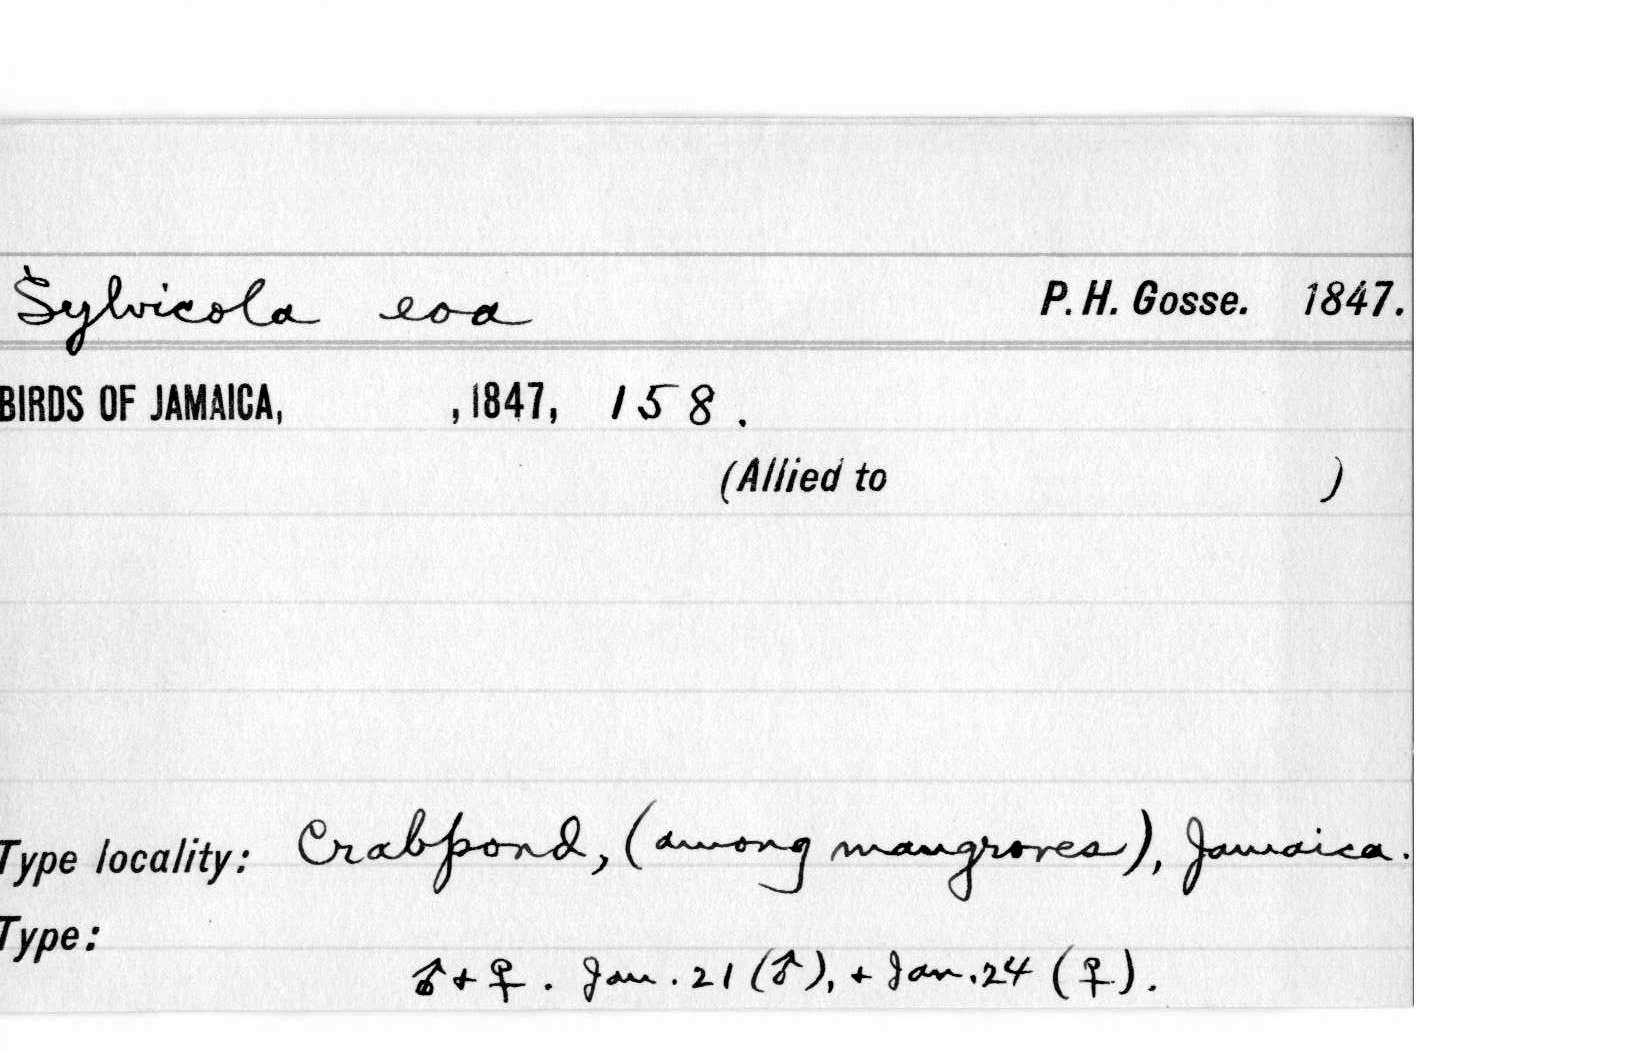 Sylvicola eoa P. H. Gosse. 1847.
BIRDS OF JAMAICA, , 1847, 158.
(Allied to )
Type locality: Crabpond, (among mangroves), Jamaica.
Type:
♂ + ♀. Jan. 21 (♂), + Jan. 24 (♀).